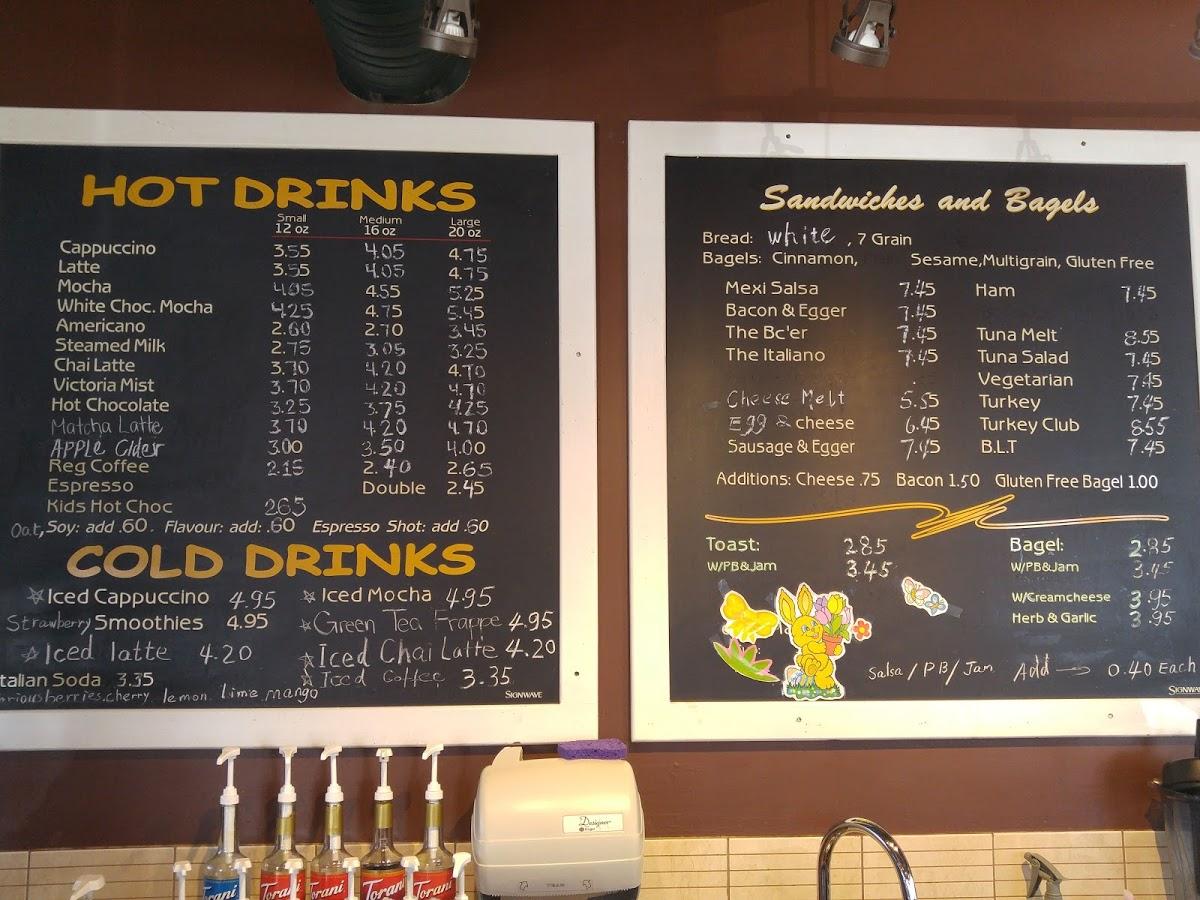 HOT DRINKS
Small Medium Large
12 oz 16 oz 20 oz
Cappuccino 3.55 4.05 4.75
Latte 3.55 4.05 4.75
Mocha 4.05 4.55 5.25
White Choc. Mocha 4.25 4.75 5.45
Americano 2.60 2.70 3.45
Steamed Milk 2.75 3.05 3.25
Chai Latte 3.70 4.20 4.70
Victoria Mist 3.70 4.20 4.70
Hot Chocolate 3.25 3.75 4.25
Matcha Latte 3.70 4.20 4.70
APPLE Cider 3.00 3.50 4.00
Reg Coffee 2.15 2.40 2.65
Espresso Double 2.45
Kids Hot Choc 2.65
Oat, Soy: add .60. Flavour: add: .60 Espresso Shot: add .60
COLD DRINKS
Iced Cappuccino 4.95 Iced Mocha 4.95
Strawberry Smoothies 4.95 Green Tea Frappe 4.95
Iced latte 4.20 Iced Chai Latte 4.20
talian Soda 3.35 Iced Coffee 3.35
berries, cherry, lemon, lime, mango
SIGNWAVE
Sandwiches and Bagels
Bread: white, 7 Grain
Bagels: Cinnamon, Sesame, Multigrain, Gluten Free
Mexi Salsa 7.45 Ham 7.45
Bacon & Egger 7.45
The Bc'er 7.45 Tuna Melt 8.55
The Italiano 7.45 Tuna Salad 7.45
Vegetarian 7.45
Cheese Melt 5.55 Turkey 7.45
Egg & cheese 6.45 Turkey Club 8.55
Sausage & Egger 7.45 B.L.T 7.45
Additions: Cheese .75 Bacon 1.50 Gluten Free Bagel 1.00
Toast: 2.85 Bagel: 2.85
W/PB&Jam 3.45 W/PB&Jam 3.45
W/Creamcheese 3.95
Herb & Garlic 3.95
Salsa / PB / Jam Add → 0.40 Each
SIGNWAV
Designer
TORANI
TORANI
TORANI
TORANI
TORANI